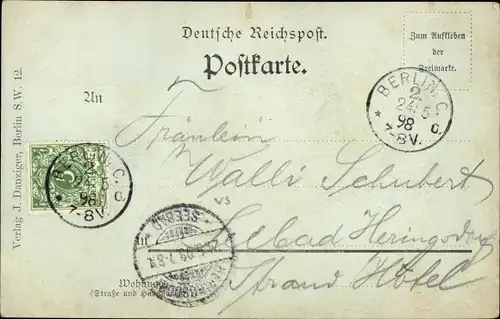 Deutsche Reichspost.
Postkarte.
Zum Aufkleben
der
Freimarke.
An
Fräulein
Walli Schubert
vs
in
Seebad Heringsdorf
Strand Hôtel
Wohnung
(Straße und
Verlag J. Danziger, Berlin S.W. 12.
BERLIN, C.
2.
24/5
98
7-8V.
* c.
BERLIN, C.
98
7-8V.
SEEBAD
HERINGSDORF